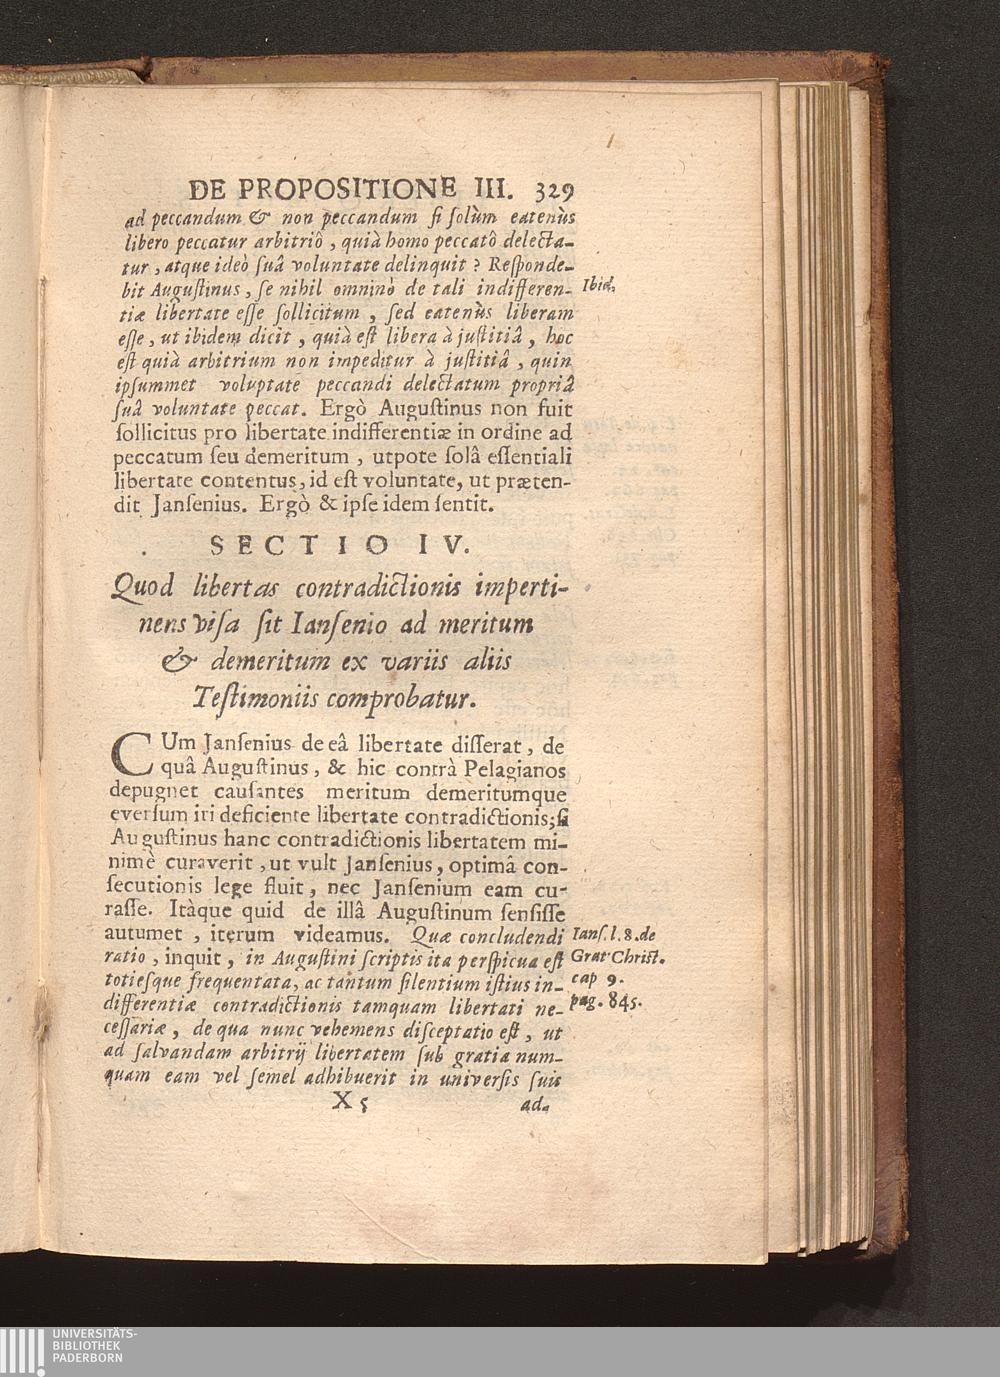 DE PROPOSITIONE III. 329
ad peccandum & non peccandum si solùm eatenùs
libero peccatur arbitriô, quià homo peccatô delecta-
tur, atque ideò suâ voluntate delinquit? Responde-
bit Augustinus, se nihil omninò de tali indifferen-
Ibid.
tiæ libertate esse sollicitum, sed eatenùs liberam
esse, ut ibidem dicit, quià est libera à justitiâ, hoc
est quià arbitrium non impeditur à justitiâ, quin
ipsummet voluptate peccandi delectatum propriâ
suâ voluntate peccat. Ergò Augustinus non fuit
sollicitus pro libertate indifferentiæ in ordine ad
peccatum seu demeritum, utpote solâ essentiali
libertate contentus, id est voluntate, ut præten-
dit Jansenius. Ergò & ipse idem sentit.
SECTIO IV.
Quod libertas contradictionis imperti-
nens visa sit Iansenio ad meritum
& demeritum ex variis aliis
Testimoniis comprobatur.
CUm Jansenius de eâ libertate disserat, de
quâ Augustinus, & hic contrà Pelagianos
depugnet causantes meritum demeritumque
eversum iri deficiente libertate contradictionis; si
Augustinus hanc contradictionis libertatem mi-
nimè curaverit, ut vult Jansenius, optimâ con-
secutionis lege fluit, nec Jansenium eam cu-
rasse. Itàque quid de illâ Augustinum sensisse
autumet, iterum videamus. Quæ concludendi
Ians. l. 8. de
ratio, inquit, in Augustini scriptis ita perspicua est
Grat Christ.
totiesque frequentata, ac tantum silentium istius in-
cap 9.
differentiæ contradictionis tamquam libertati ne-
pag. 845.
cessariæ, de qua nunc vehemens disceptatio est, ut
ad salvandam arbitrij libertatem sub gratia num-
quam eam vel semel adhibuerit in universis suis
X 5
ad.
UNIVERSITÄTS-
BIBLIOTHEK
PADERBORN